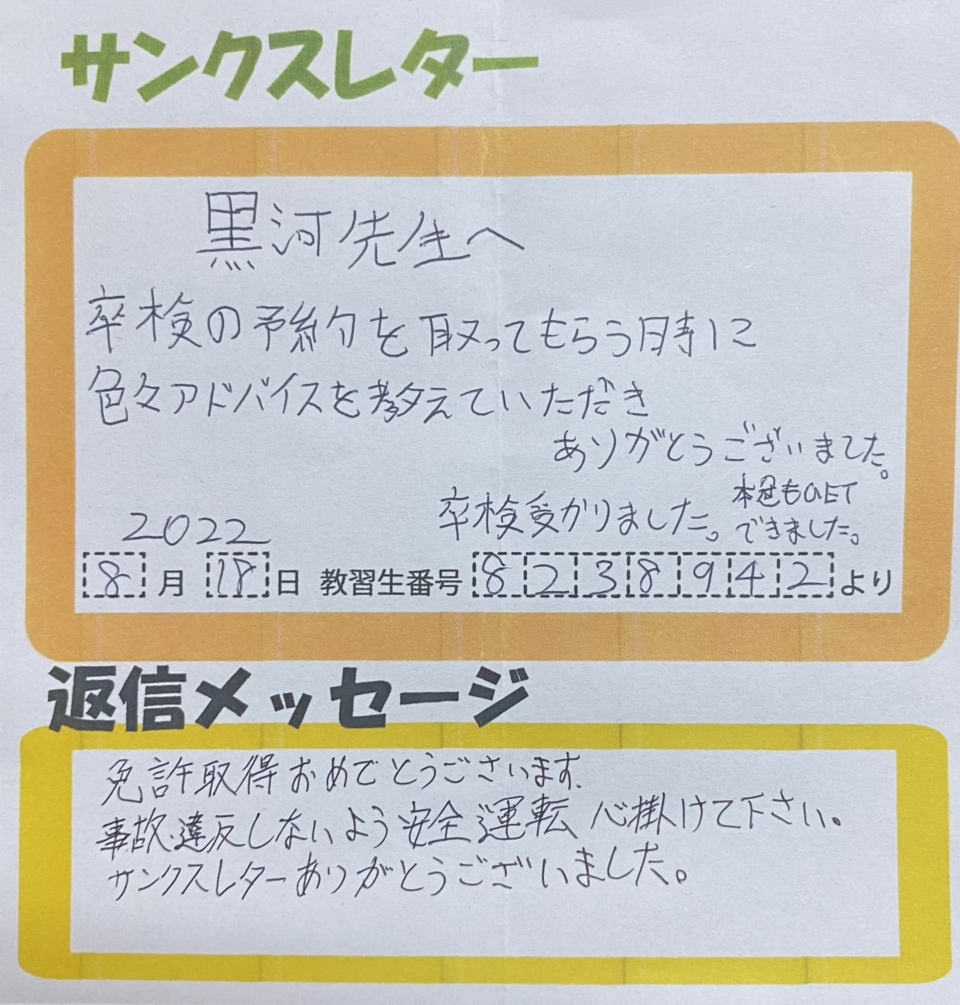 サンクスレター
黒河先生へ
卒検の予約を取ってもらう時に
色々アドバイスを教えていただき
ありがとうございました。
卒検受かりました。
本免もGET
できました。
2022
8月18日 教習生番号 8238942より
返信メッセージ
免許取得おめでとうございます.
事故、違反しないよう安全運転 心掛けて下さい。
サンクスレターありがとうございました。